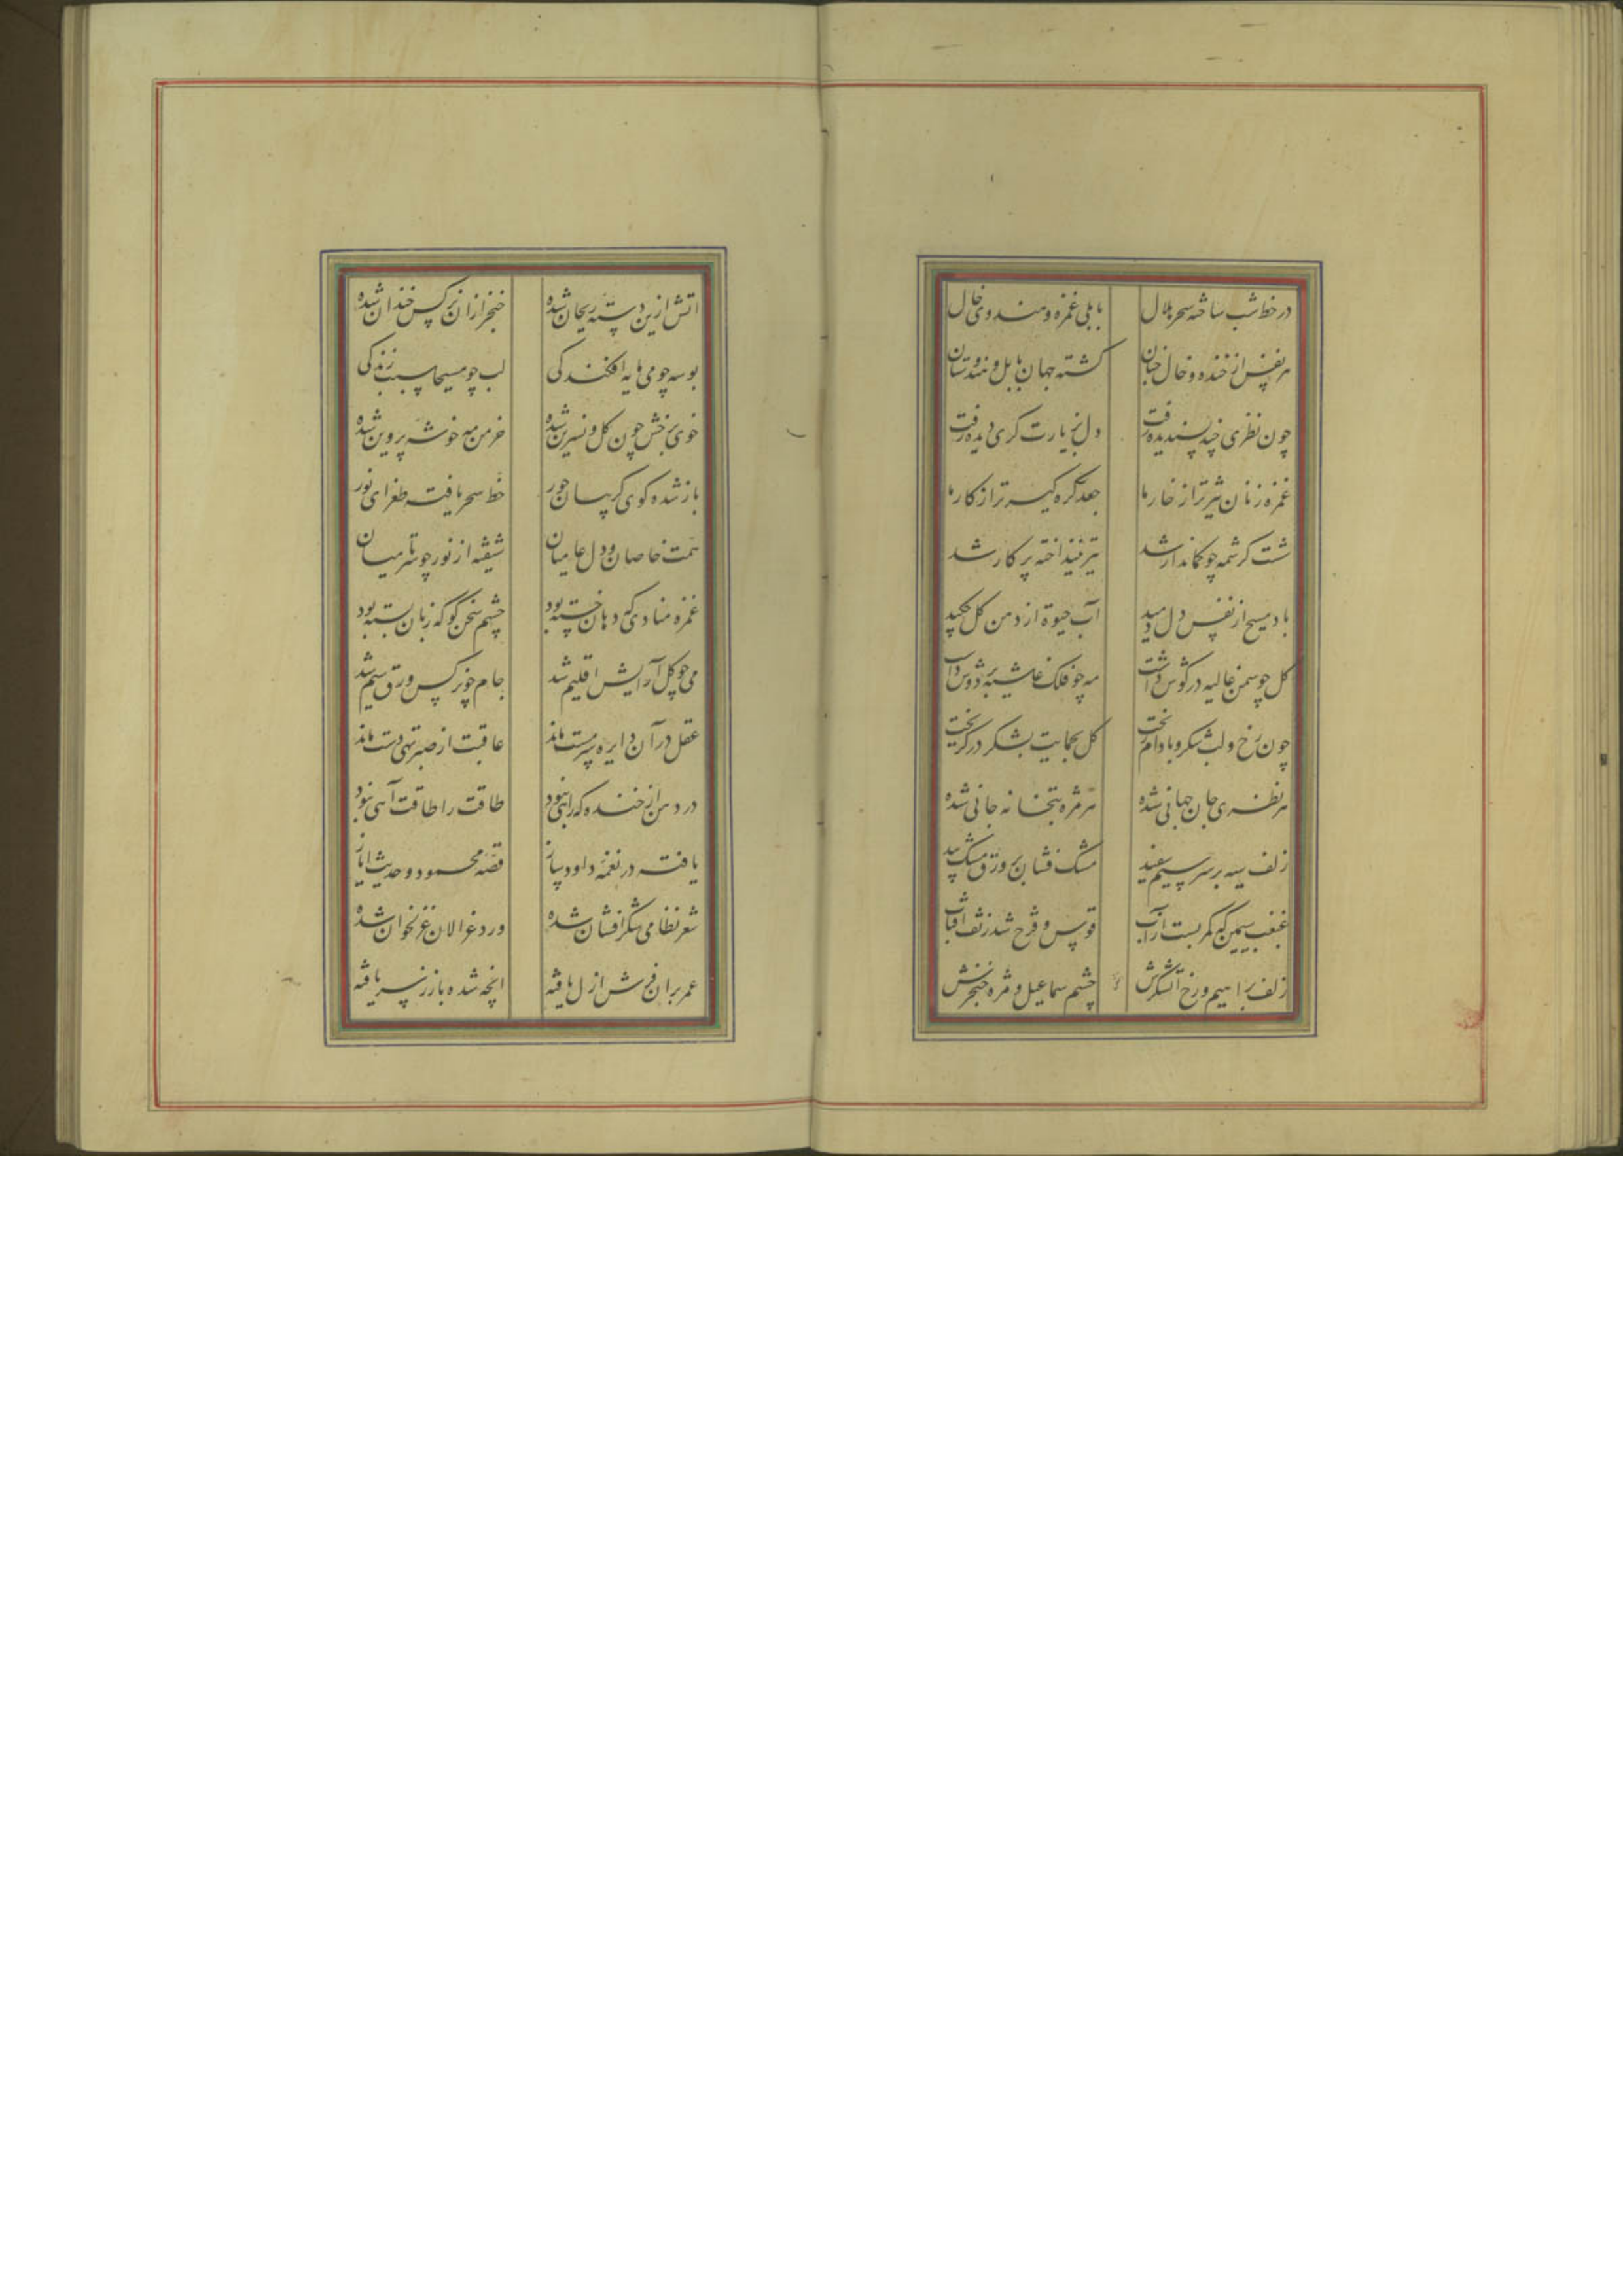 در خط شب ساخته سحر هلال بابلی غمزه و هندوی خال
هر نفس از خنده و خال چنان کشته جهان بابل و هندوستان
چون نظری چند پسندیده رفت دل بزیارت کری دیده رفت
غمزه زنان تیزتر از خارها جعد گره گیرتر از کارها
شست کرشمه چو کماندار شد تیر نینداخته پر کار شد
باد مسیح از نفس دل دمید آب حیوة از دهن کل چکید
کل چو سمن غالیه در کوش داشت مه چو فلک غاشیه بر دوش داشت
چون رخ و لبش شکر و بادام ریخت کل بحمایت بشکر در کریخت
هر نظری جان جهانی شده هر مژه بتخانه جانی شده
زلف سیه بر سر سیم سفید مشک فشان بر ورق مشک بید
غبغب سیمین که کمر بست از آب قوس و قزح شد ز تف آفتاب
زلف براهیم و رخ آتشکرش چشم سماعیل و مژه خنجرش
اتش ازین دسته ریحان شده خنجر ازان نرکس خندان شده
بوسه چو می مایه افکندکی لب چو مسیحا سبب زندکی
خوی برخش چون کل و نسرین شده خرمن مه خوشه پروین شده
باز شده کوی کریبان حور خط سحر یافته طغرای نور
همت خاصان و دل عامیان شیفته از نور چو تر میان
غمزه منادی که دهان خسته بود چشم سخن کو که زبان بسته بود
می چو کل آرایش اقلیم شد جام چو نرکس ورق سیم شد
عقل در آن دایره سرمست ماند عاقبت از صبر تهی دست ماند
در دهن از خنده که راهی نبود طاقت را طاقت آهی نبود
یافته در نغمه داود ساز قصه محمود و حدیث ایاز
شعر نظامی شکر افشان شده ورد غزالان غزلخوان شده
عمر بران فرش ازل یافته انچه شده باز ز سر یافته